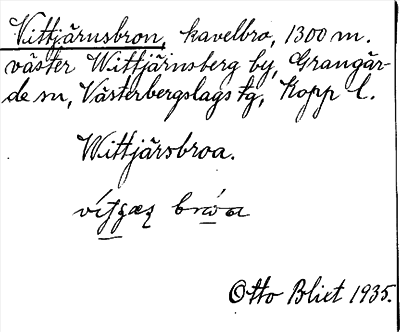 Vittjärnsbron, kavelbro, 1300 m.
väster Wittjärnsberg by, Grangär-
de sn, Västerbergslags tg, Kopp l.
Wittjärsbroa.
Otto Blixt 1935.